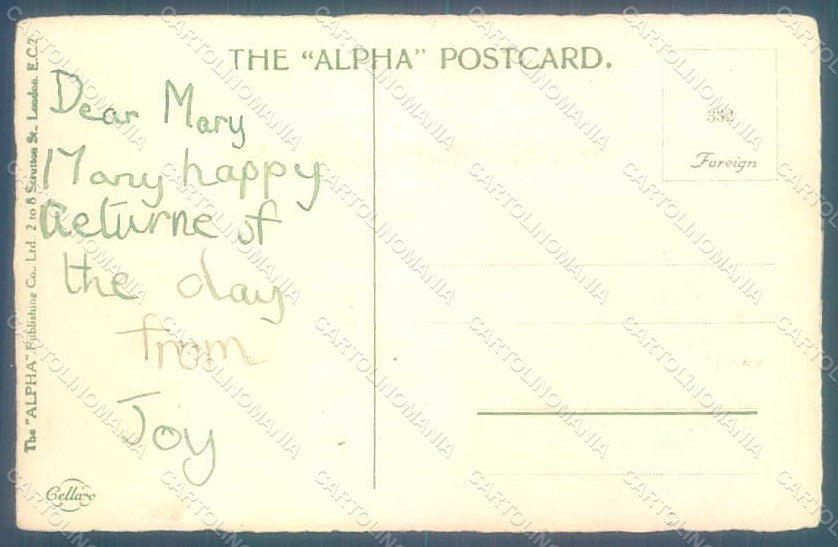 THE "ALPHA" POSTCARD.
332
Foreign
The "ALPHA" Publishing Co., Ltd. 2 to 8 Scrutton St., London, E.C.2
Dear Mary
Many happy
Returne of
the day
from
Joy
Cellaro
CARTOLINOMANIA